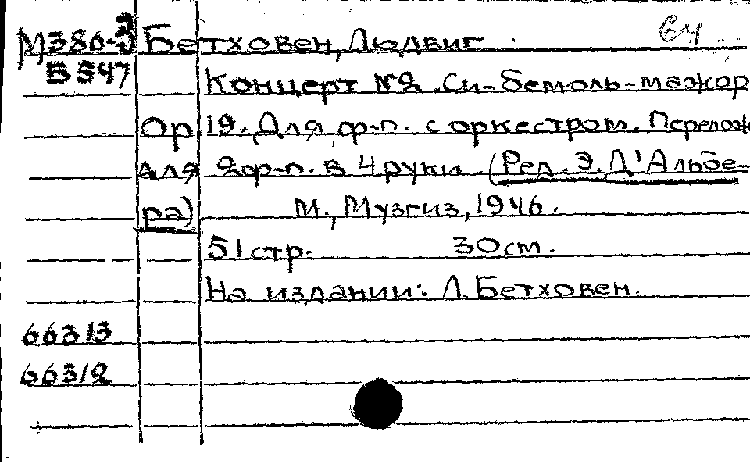 М380-3 Бетховен, Людвиг. 64
Б 547 Концерт №2. Си-бемоль-мажор
Ор 19. Для ф-п. с оркестром. Перелож
для 2 ф-п. в 4 руки (Ред. Э. Д'Альбе-
ра) М., Музгиз, 1946.
51 стр. 30 см.
На издании: Л. Бетховен.
66313
66312